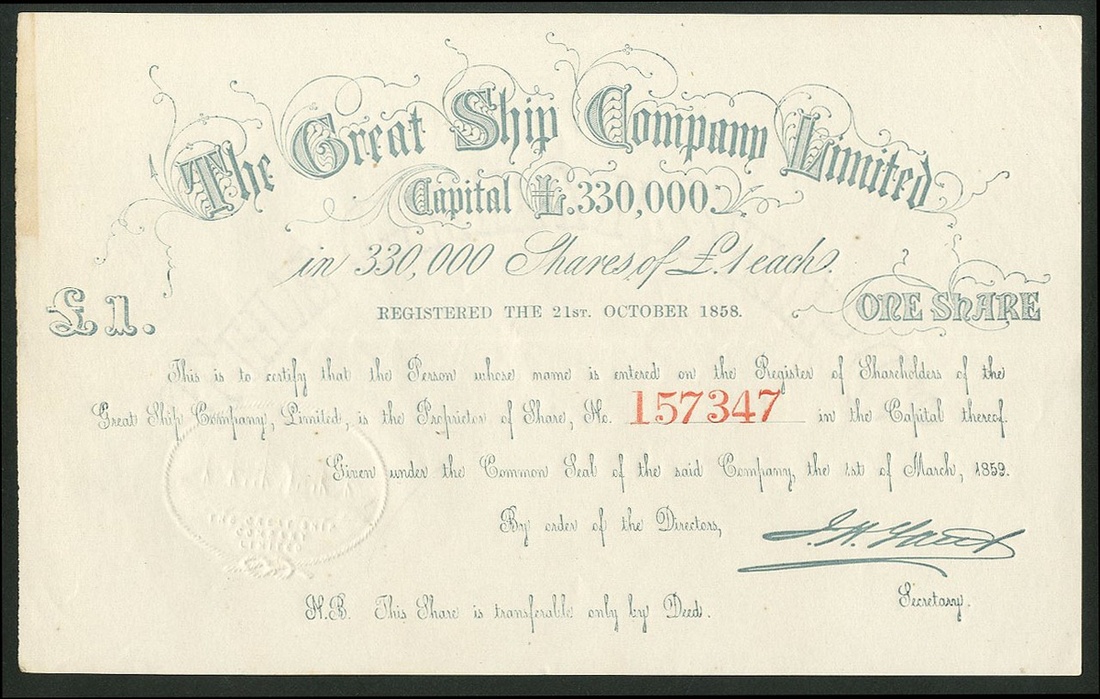 The Great Ship Company Limited
Capital £.330,000.
in 330,000 Shares of £.1 each.
£1.
REGISTERED THE 21ST. OCTOBER 1858.
ONE SHARE
This is to certify that the Person whose name is entered on the Register of Shareholders of the
Great Ship Company, Limited, is the Proprietor of Share, No. 157347 in the Capital thereof.
Given under the Common Seal of the said Company, the 1st of March, 1859.
By order of the Directors,
THE GREAT SHIP
COMPANY
LIMITED
Secretary.
N.B. This Share is transferable only by Deed.